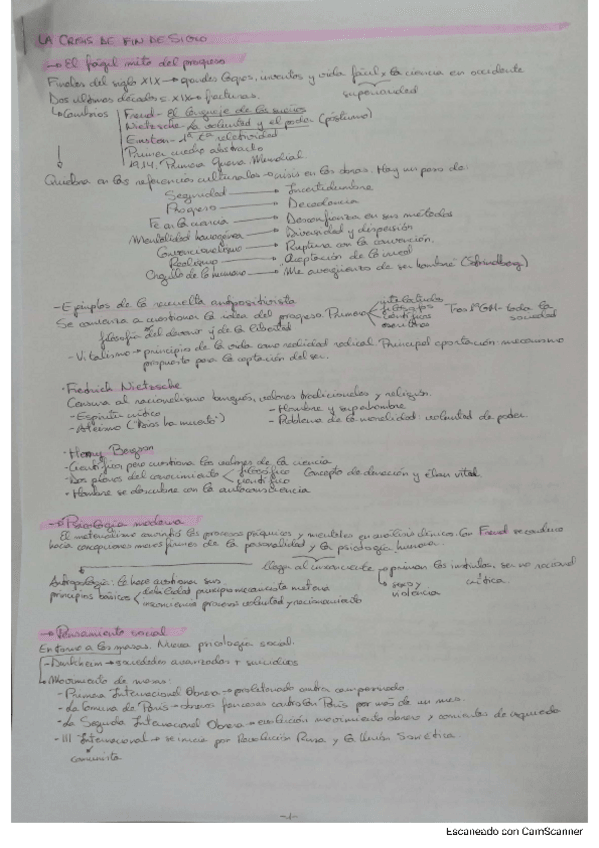 LA CRISIS DE FIN DE SIGLO
→ El frágil mito del progreso
Finales del siglo XIX → grandes logros, inventos y vida fácil x la ciencia en occidente
superioridad
Dos últimas décadas s. XIX → fracturas.
↳ Cambios
Freud - El lenguaje de los sueños
Nietzsche - La voluntad y el poder (póstumo)
Einstein - 1ª tª relatividad
Primer cuadro abstracto
1914. Primera Guerra Mundial.
Quiebra en las referencias culturales → crisis en las obras. Hay un paso de:
Seguridad → Incertidumbre
Progreso → Decadencia
Fe en la ciencia → Desconfianza en sus métodos
Mentalidad homogénea → Diversidad y dispersión
Convencionalismo → Ruptura con la convención.
Realismo → Aceptación de lo irreal
Orgullo de lo humano → "Me avergüenzo de ser hombre" (Strindberg)
- Ejemplos de la revuelta antipositivista
Se comienza a cuestionar la idea del progreso. Primero
intelectuales
filósofos
científicos
escritores
Tras 1ª GM - toda la sociedad
filosofía del devenir y de la libertad
- Vitalismo → principios de la vida como realidad radical. Principal aportación: mecanismo
propuesto para la captación del ser.
· Fredrich Nietzsche
Censura al racionalismo burgués, valores tradicionales y religión.
- Espíritu crítico
- Hombre y superhombre
- Ateísmo ("Dios ha muerto")
- Problema de la moralidad: voluntad de poder.
· Henry Bergson
- Científico, pero cuestiona los valores de la ciencia
- Dos planos del conocimiento
filosófico
científico
Concepto de duración y élan vital
- Hombre se descubre con la autoconciencia
→ Psicología moderna
El materialismo convirtió los procesos psíquicos y mentales en análisis clínicos. Con Freud se conduce
hacia concepciones menos firmes de la personalidad y la psicología humana.
llega al inconsciente → priman los instintos, ser no racional
↳ sexo y violencia
crítica
Antropología: le hace cuestionar sus
principios básicos
debilidad principio mecanicista materia
inconsciencia procesos voluntad y raciocinio
→ Pensamiento social
Enfrme a las masas. Nueva psicología social.
- Durkheim → sociedades avanzadas + suicidios
↳ Movimiento de masas:
- Primera Internacional Obrera → proletariado ámbito campesinado
- La Comuna de París → obreros franceses controlan París por más de un mes.
- La Segunda Internacional Obrera → evolución movimiento obrero y corrientes de izquierda
- III Internacional → se inicia por Revolución Rusa y la Unión Soviética.
comunista
-1-
Escaneado con CamScanner